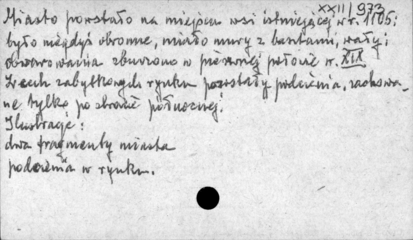 XXII/973
Miasto powstało na miejscu wsi istniejącej w r. 1105;
było niegdyś obronne, miało mury z basztami, wały i
obwarowania zburzono w pierwszej połowie w. XIX
zabytkowych rynku pozostały podcienia, zachowa-
ne tylko po stronie północnej.
Ilustracje:
dwa fragmenty miasta
podcienia w rynku.